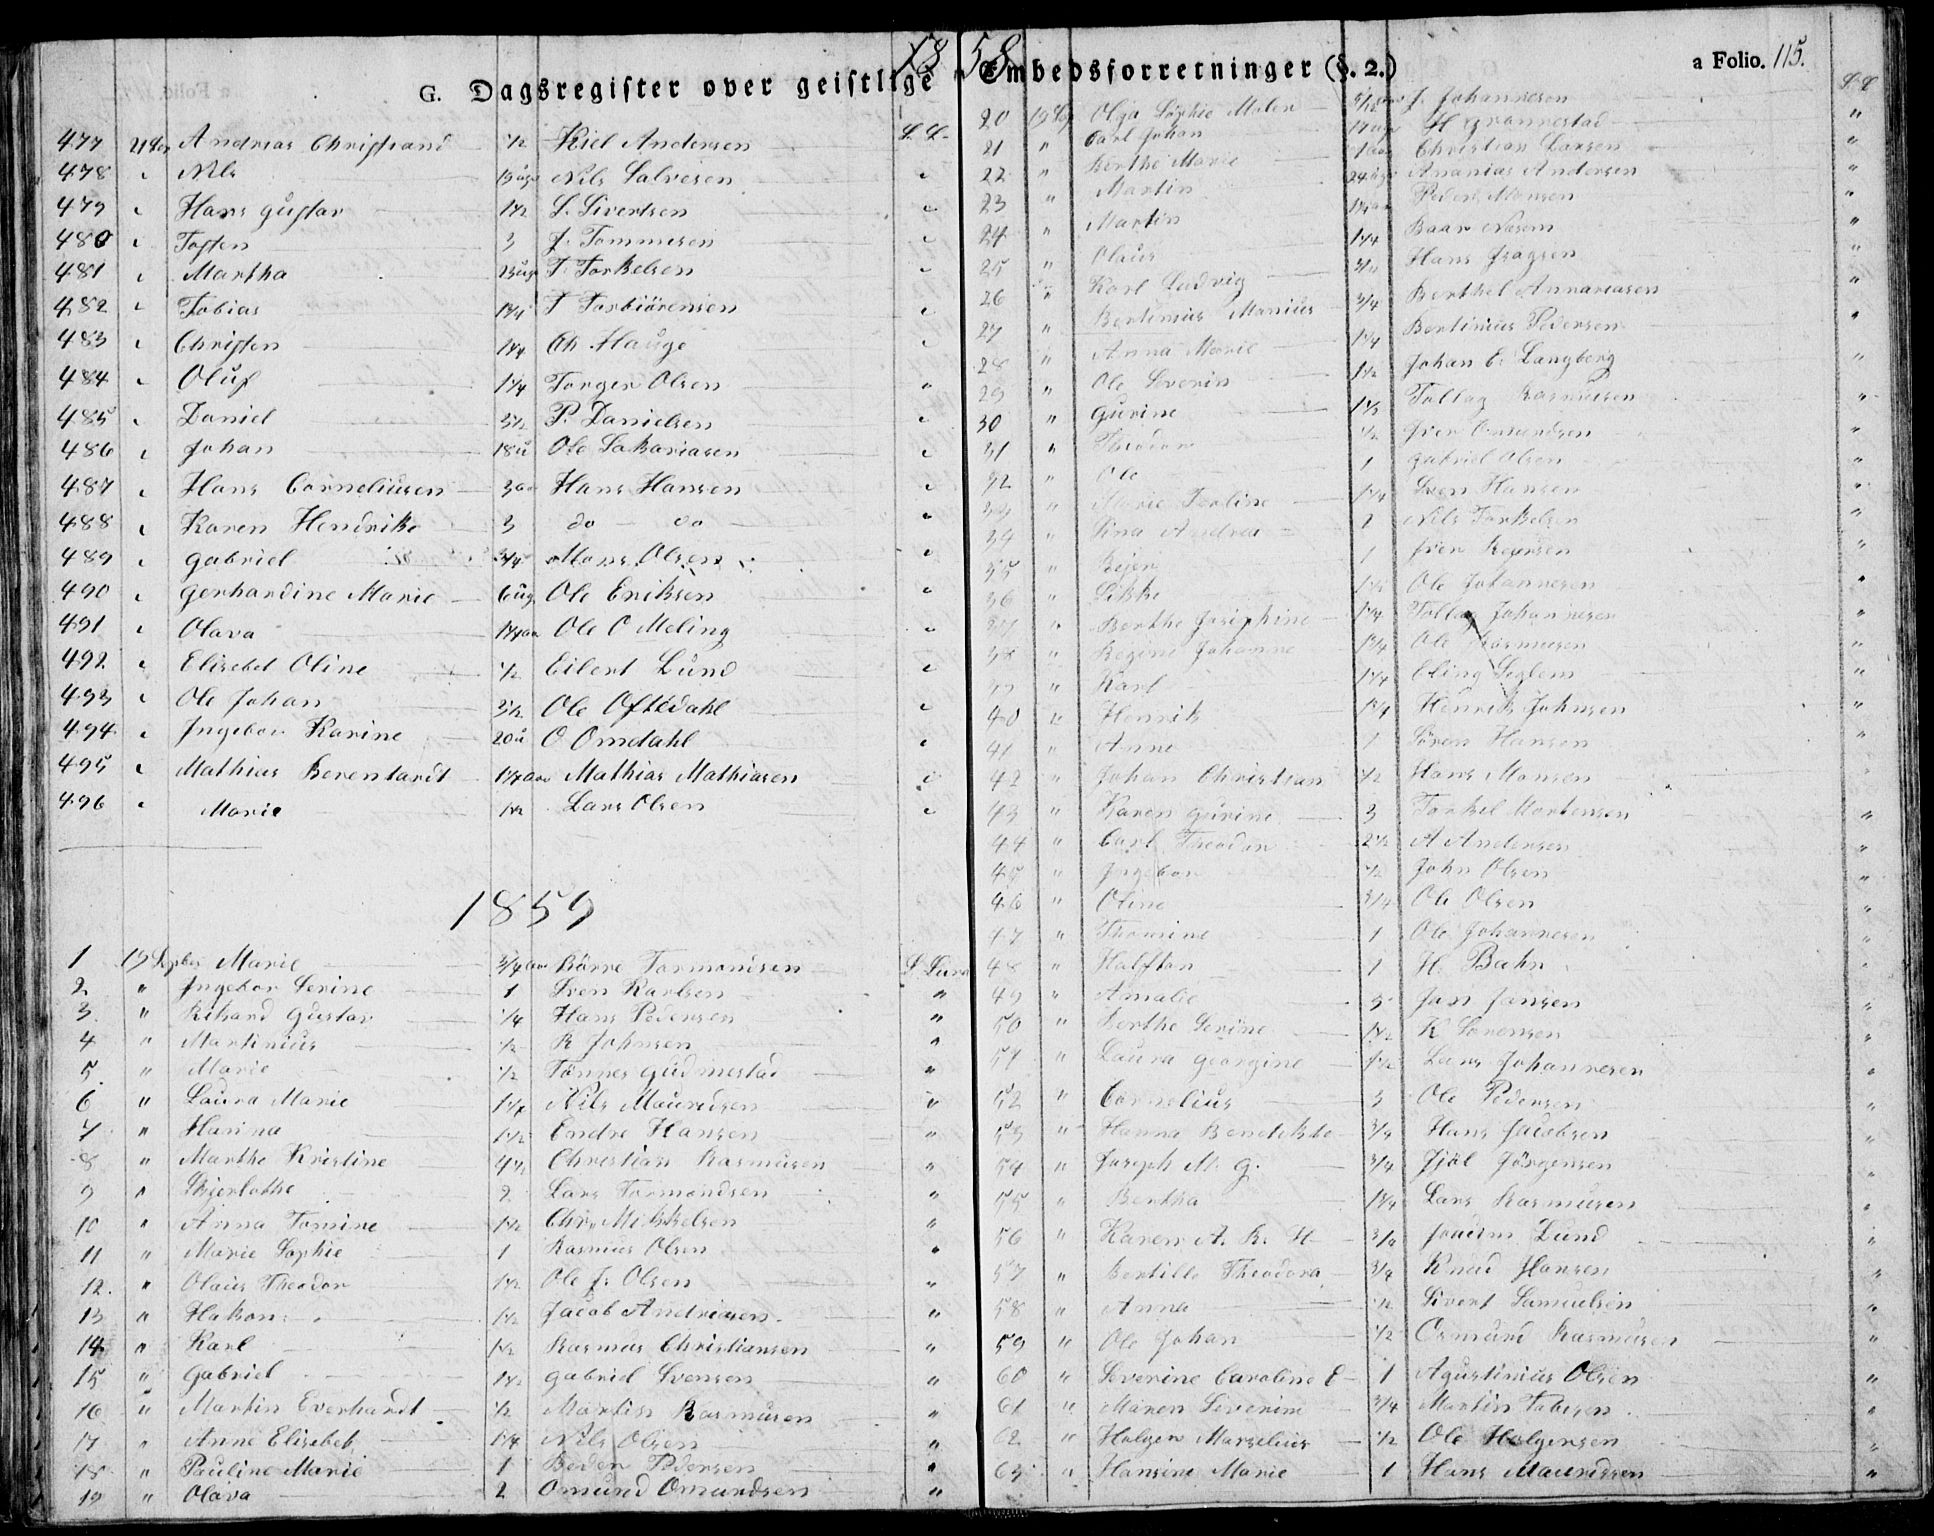 1858
G. Dagsregister over geistlige Embedsforretninger (§. 2.)
a Folio. 115.
477 Andreas Christiand ½ Kiel Andersen L. L.
478 " Nils Nils Salvesen "
479 " Hans Gustav 1½ S. Sivertsen "
480 " Tosten 3 J. Tommesen "
481 " Martha T. Torkelsen "
482 " Tobias 1¼ T Torbiörensen "
483 " Christen 1¼ Ch. Hauge "
484 " Oluf 1¼ Torger Olsen "
485 " Daniel 3½ P. Danielsen "
486 " Johan 18u Ole Sakariasen "
487 " Hans Corneliusen 3 Hans Hansen "
488 " Karen Hendrike 3 do do "
489 " Gabriel ¾ Mons Olsen "
490 " Gerhardine Marie 6ug Ole Eriksen "
491 " Olava Ole O Meling "
492 " Elisebet Oline ½ Eilert Lund "
493 " Ole Johan 3½ Ole Oftedahl "
494 " Ingebor Karine 20u O Omdahl "
495 " Mathias Berentardt Mathias Mathiasen "
496 " Marie 1½ Lars Olsen "
1859
1 19 Marie ¾ Börre Tormondsen L. Lura
2 " Ingebor Serine 1 Sven Karlsen "
3 " Rikard Gustav ¼ Hans Pedersen "
4 " Martinius ½ R Johnsen "
5 " Marie ½ Tönnes Gudmestad "
6 " Laura Marie 1¼ Nils Mauridsen "
7 " Hanna 1½ Endre Hansen "
8 " Marthe Kristine 4½ Christian Rasmusen "
9 " 2 Lars Tormondsen "
10 " Anna Tomine 1½ Chr. Mikkelsen "
11 " Marie Sophie 1 Rasmus Olsen "
12. " Olaus Theodor 1½ Ole J. Olsen "
13 " Hakon 1½ Jacob Andreasen "
14 " Karl 1½ Rasmus Christiansen "
15 " Gabriel 1½ Gabriel Svensen "
16 " Martin Everhardt ½ Martin Rasmusen "
17 " Anne Elisebet 1¼ Nils Olsen "
18 " Pauline Marie 1 Peder Pedersen "
19 " Olava 2 Omund Omundsen "
L. L.
20 19 Olga Sophie J. Johannesen "
21 " Carl Johan H Grannestad "
22 " Berthe Marie Christian Larsen "
23 " Martin Ananias Andersen "
24 " Martin Peder Monsen "
25 " Olaus 1¼ "
26 " Karl Ludvig Hans "
27 " Bertinius Monius ¾ "
28 " Anna Marie 1¼ Bertinius Pedersen "
29 " Ole Severin 1½ Johan E. Langberg "
30 " Gurine 1½ Tollag Rasmusen "
31 " Theodor ½ Iver Omundsen "
32 " Ole 1 Gabriel Olsen "
33 " Marie 1¼ Sven Hansen "
34 " Sina Andrea 2 Nils Torkelsen "
35 " 1 Iver "
36 " Ole Johannesen "
37 " Berthe Josephine 1¼ Tollag Johannesen "
38 " Regine Johanne 1¼ Ole Rasmusen "
39 " Karl 1¼ "
40 " Henrik 1¼ Henrik Johnsen "
41 " Anne 1 Sören Hansen "
42 " Johan Christian ½ Hans Monsen "
43 " Karen Gurine 3 Torkel Mortensen "
44 " Carl Theodor 2½ A Andersen "
45 " Ingebor ½ John Olsen "
46 " Oline ¾ Ole Olsen "
47 " Thomine 1 Ole Johannesen "
48 " Halftan 1 H. Bahn "
49 " Amalie Jan Jansen "
50 " Berthe Serine 1½ K Sörensen "
51 " Laura Georgine 1½ Lars Johannesen "
52 " Cornelius 3 Ole Pedersen "
53 " Hanna Bendikte ¾ Hans Jacobsen "
54 " Joseph M. G. ¾ Jörgensen "
55 " Bertha 1¼ Lars Rasmusen "
56 " Karen A. K. H ¾ Joachm Lund "
57 " Bertille Theodora ¾ Knud Hansen "
58 " Anna ½ Sivert Samuelsen "
59 " Ole Johan ½ Osmund Rasmusen "
60 " Severine Caroline E 1 Agustinius Olsen "
61 " Maren Severine ¾ Martin Tobesen "
62 " Holger Marselius ½ Ole Holgersen "
63 " Hansine Marie 1 Hans Mauridsen "